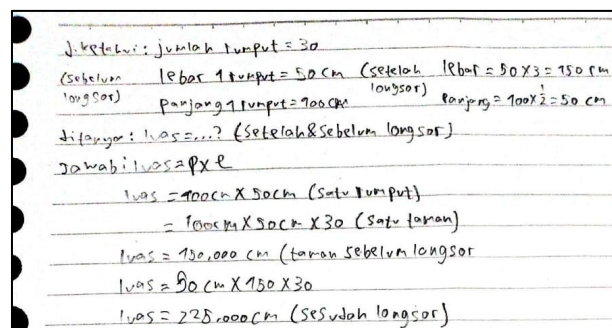 diketahui : jumlah rumput = 30
(sebelum longsor) lebar 1 rumput = 50 cm (setelah longsor) lebar = 50 x 3 = 150 cm
panjang 1 rumput = 100 cm panjang = 100 x 1/2 = 50 cm
ditanya : luas = ...? (setelah & sebelum longsor)
Jawab : luas = p x l
luas = 100 cm x 50 cm (satu rumput)
= 100 cm x 50 cm x 30 (satu taman)
luas = 150.000 cm (taman sebelum longsor
luas = 50 cm x 150 x 30
luas = 225.000 cm (sesudah longsor)